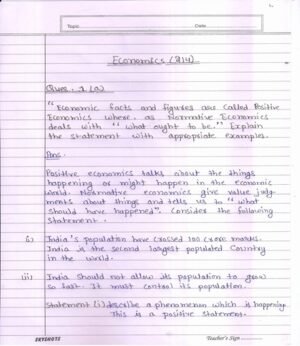 Topic
Date
Economics (214)
Ques. 1 (a)
"Economic facts and figures are called Positive
Economics where as Normative Economics
deals with "what ought to be." Explain
the statement with appropriate examples.
Ans.
Positive economics talks about the things
happening or might happen in the economic
world. Normative economics give value judg-
ments about things and tells us to "what
should have happened". Consider the following
statement.
i) India's population have crossed 100 crore marks.
India is the second largest populated Country
in the world.
ii) India should not allow its population to grow
so fast. It must control its population.
Statement (i) describe a phenomenon which is happening.
This is a positive statement.
SKYNOTE
Teacher's Sign